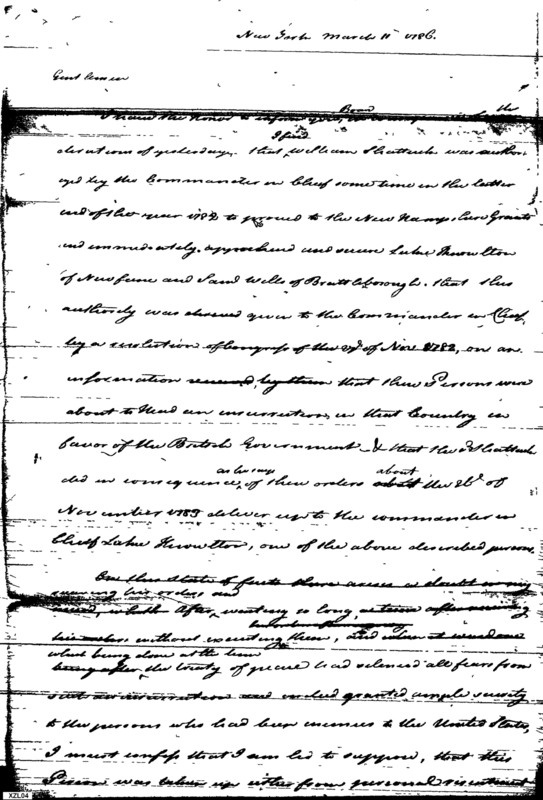 New York March 11th 1786.
Gentlemen
I have the honor to inform your Board, in consequence of the
I find
derations of yesterday, that William Shattuck was author
ized by the Commander in Chief some time in the latter
end of the year 1782 to proceed to the New Hampshire Grants
and immediately apprehend and secure Luke Knowlton
of Newfane and Saml Wells of Brattleborough. that this
authority was given to the Commander in Chief,
by a resolution of Congress of the 27th of Nov 1782, on an
information received, by them that these Persons were
about to Head an insurrection, in that Country in
favor of the British Government & that the sd Shattuck
as he says about
did in consequence, of these orders about the 26th of
November 1783 deliver up to the commander in
Chief Luke Knowlton, one of the above described persons
On this state of facts there arises a doubt in my
receiving his orders and
mind, whether After, waiting so long,
his orders without executing them, and when
what being done at the time
being after, the treaty of peace had silenced all fears from
such an insurrection and indeed granted ample security
to the persons who had been enemies to the United States,
I must confess that I am led to suppose, that this
Person was taken up either from personal resentment
XZL04